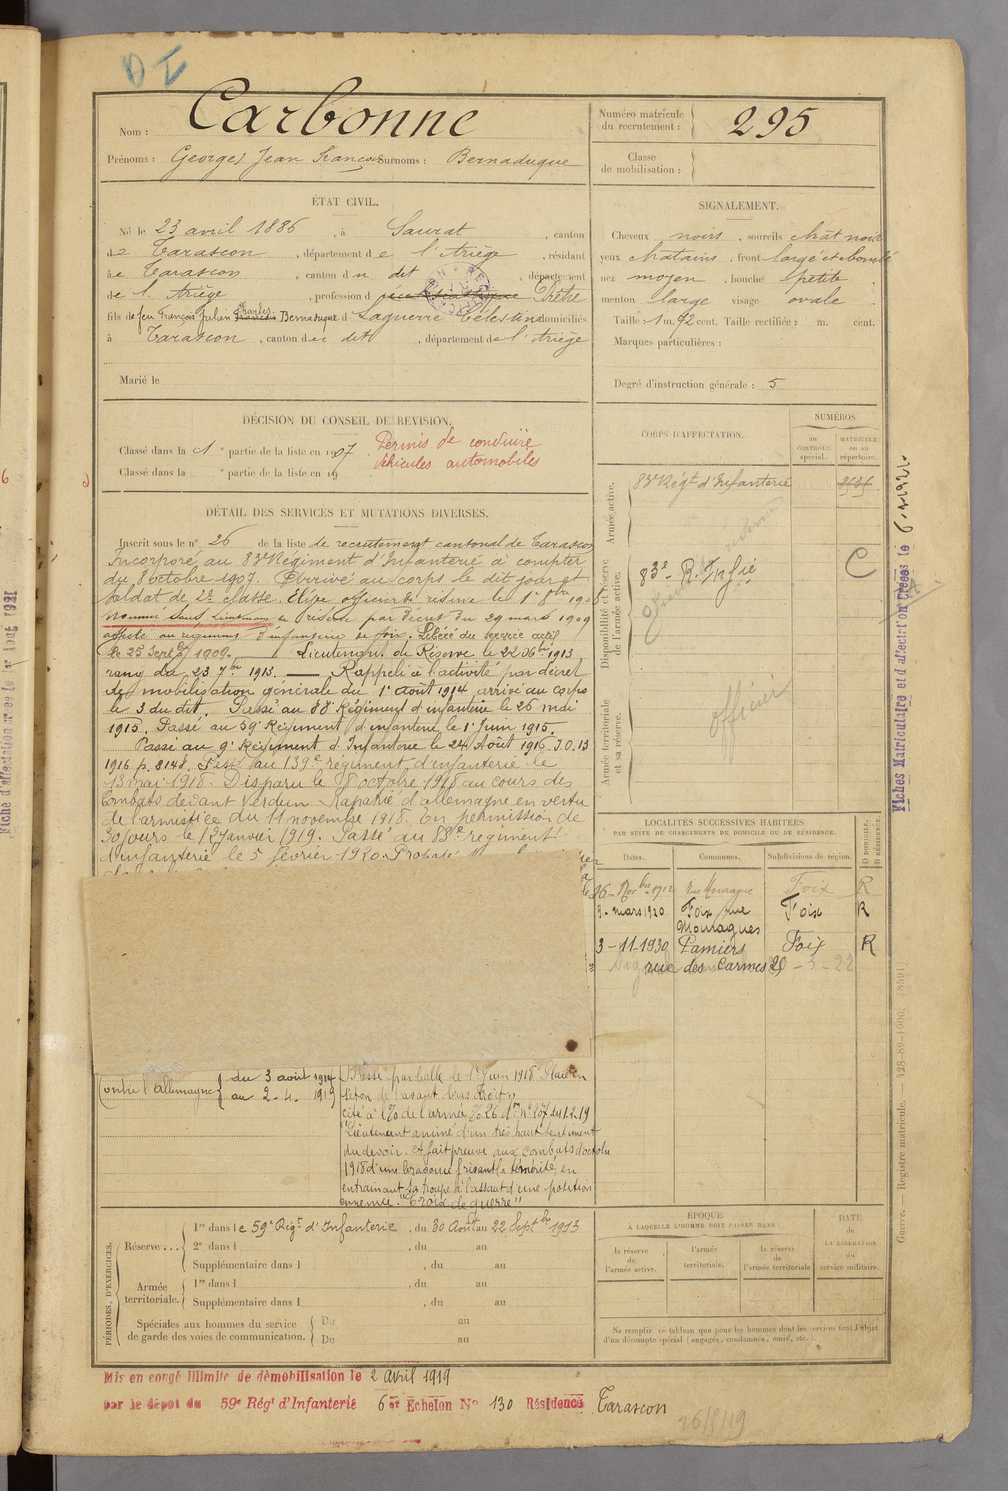 DI
Nom : Carbonne
Prénoms : Georges Jean François Surnoms : Bernaduque
Numéro matricule du recrutement : 295
Classe de mobilisation :
ÉTAT CIVIL.
Né le 23 avril 1886, à Saurat, canton
de Tarascon, département de l'Ariège, résidant
à Tarascon, canton du dit, département
de l'Ariège, profession d Prêtre
fils de feu François Julien Charles Bernaduque et d Laguerre Célestine domiciliés
à Tarascon, canton du dit, département de l'Ariège
Marié le
SIGNALEMENT.
Cheveux noirs, sourcils chât noir
yeux chatains, front large et bombé
nez moyen, bouche petite
menton large visage ovale
Taille 1 m. 92 cent. Taille rectifiée : m. cent.
Marques particulières :
Degré d'instruction générale : 5
DÉCISION DU CONSEIL DE RÉVISION.
Classé dans la 1e partie de la liste en 1907
Classé dans la e partie de la liste en 19
Permis de conduire
Véhicules automobiles
DÉTAIL DES SERVICES ET MUTATIONS DIVERSES.
Inscrit sous le n° 26 de la liste de recrutement cantonal de Tarascon
Incorporé au 83e Régiment d'Infanterie à compter
du 8 octobre 1907. Arrivé au corps le dit jour et
soldat de 2e classe. Elève officier de réserve le 1e 8bre 190
Nommé Sous Lieutenant de réserve par décret du 29 mars 1909
affecté au régiment d'infanterie de Foix. Libéré du service actif
le 25 Septbre 1909. Lieutenant de Réserve le 22 Xbre 1913
rang du 23 7bre 1913. Rappelé à l'activité par décret
de mobilisation générale du 1e août 1914 arrivé au corps
le 3 du dit. Passé au 88e Régiment d'infanterie le 26 mai
1915. Passé au 59e Régiment d'infanterie le 1e Juin 1915.
Passé au 9e Régiment d'Infanterie le 24 Août 1916 J.O. 13
1916 p. 8148. Passé au 139e régiment d'infanterie le
13 mai 1918. Disparu le 8 octobre 1918 au cours des
Combats devant Verdun. Rapatrié d'allemagne en vertu
de l'armistice du 11 novembre 1918. En permission de
30 jours le 12 Janvier 1919. Passé au 18e regiment
d'infanterie le 5 février 1920.
Contre l'allemagne du 3 août 1914
au 2-4. 1919
Blessé par balle le 1e Juin 1918 Plaie en
séton de l'avant bras droit
cité à l'O. de l'armée
"Lieutenant animé d'un très haut sentiment
du devoir. A fait preuve aux combats d'octobre
1918 d'une bravoure frisant la témérité, en
entrainant sa troupe à l'assaut d'une position
ennemie. "Croix de guerre"
CORPS D'AFFECTATION.
NUMÉROS
AU CONTRÔLE spécial.
MATRICULE ou au répertoire.
Armée active.
83e Régt d'Infanterie
Disponibilité et réserve de l'armée active.
83e R. Infie
C
Armée territoriale et sa réserve.
officier
LOCALITÉS SUCCESSIVES HABITÉES
PAR SUITE DE CHANGEMENTS DE DOMICILE OU DE RÉSIDENCE.
D DOMICILE. R RÉSIDENCE.
Dates. Communes. Subdivisions de région.
16 Novbre 1912 Foix R
9 - mars 1920 Foix rue Mouragues Foix R
3-11-1930 Pamiers Foix R
rue des Carmes 29
PÉRIODES D'EXERCICES.
Réserve ... 1re dans le 59e Régt d'Infanterie, du 30 Août au 22 Septbre 1913
2e dans l , du au
Supplémentaire dans l , du au
Armée territoriale. 1re dans l , du au
Supplémentaire dans l , du au
Spéciales aux hommes du service de garde des voies de communication. Du au
Du au
ÉPOQUE
À LAQUELLE L'HOMME DOIT PASSER DANS :
la réserve de l'armée active.
l'armée territoriale.
la réserve de l'armée territoriale
DATE de LA LIBÉRATION du service militaire.
Ne remplir ce tableau que pour les hommes dont les services font l'objet
d'un décompte spécial (engagés, condamnés, omis, etc.).
Mis en congé illimité de démobilisation le 2 avril 1919
par le dépot du 59e Régt d'Infanterie 6e Echelon N° 130 Résidence Tarascon
26/8/19
Fiches Matriculaire et d'affectation Créées le
Guerre. Registre matricule. 428-89-1906. [8591]